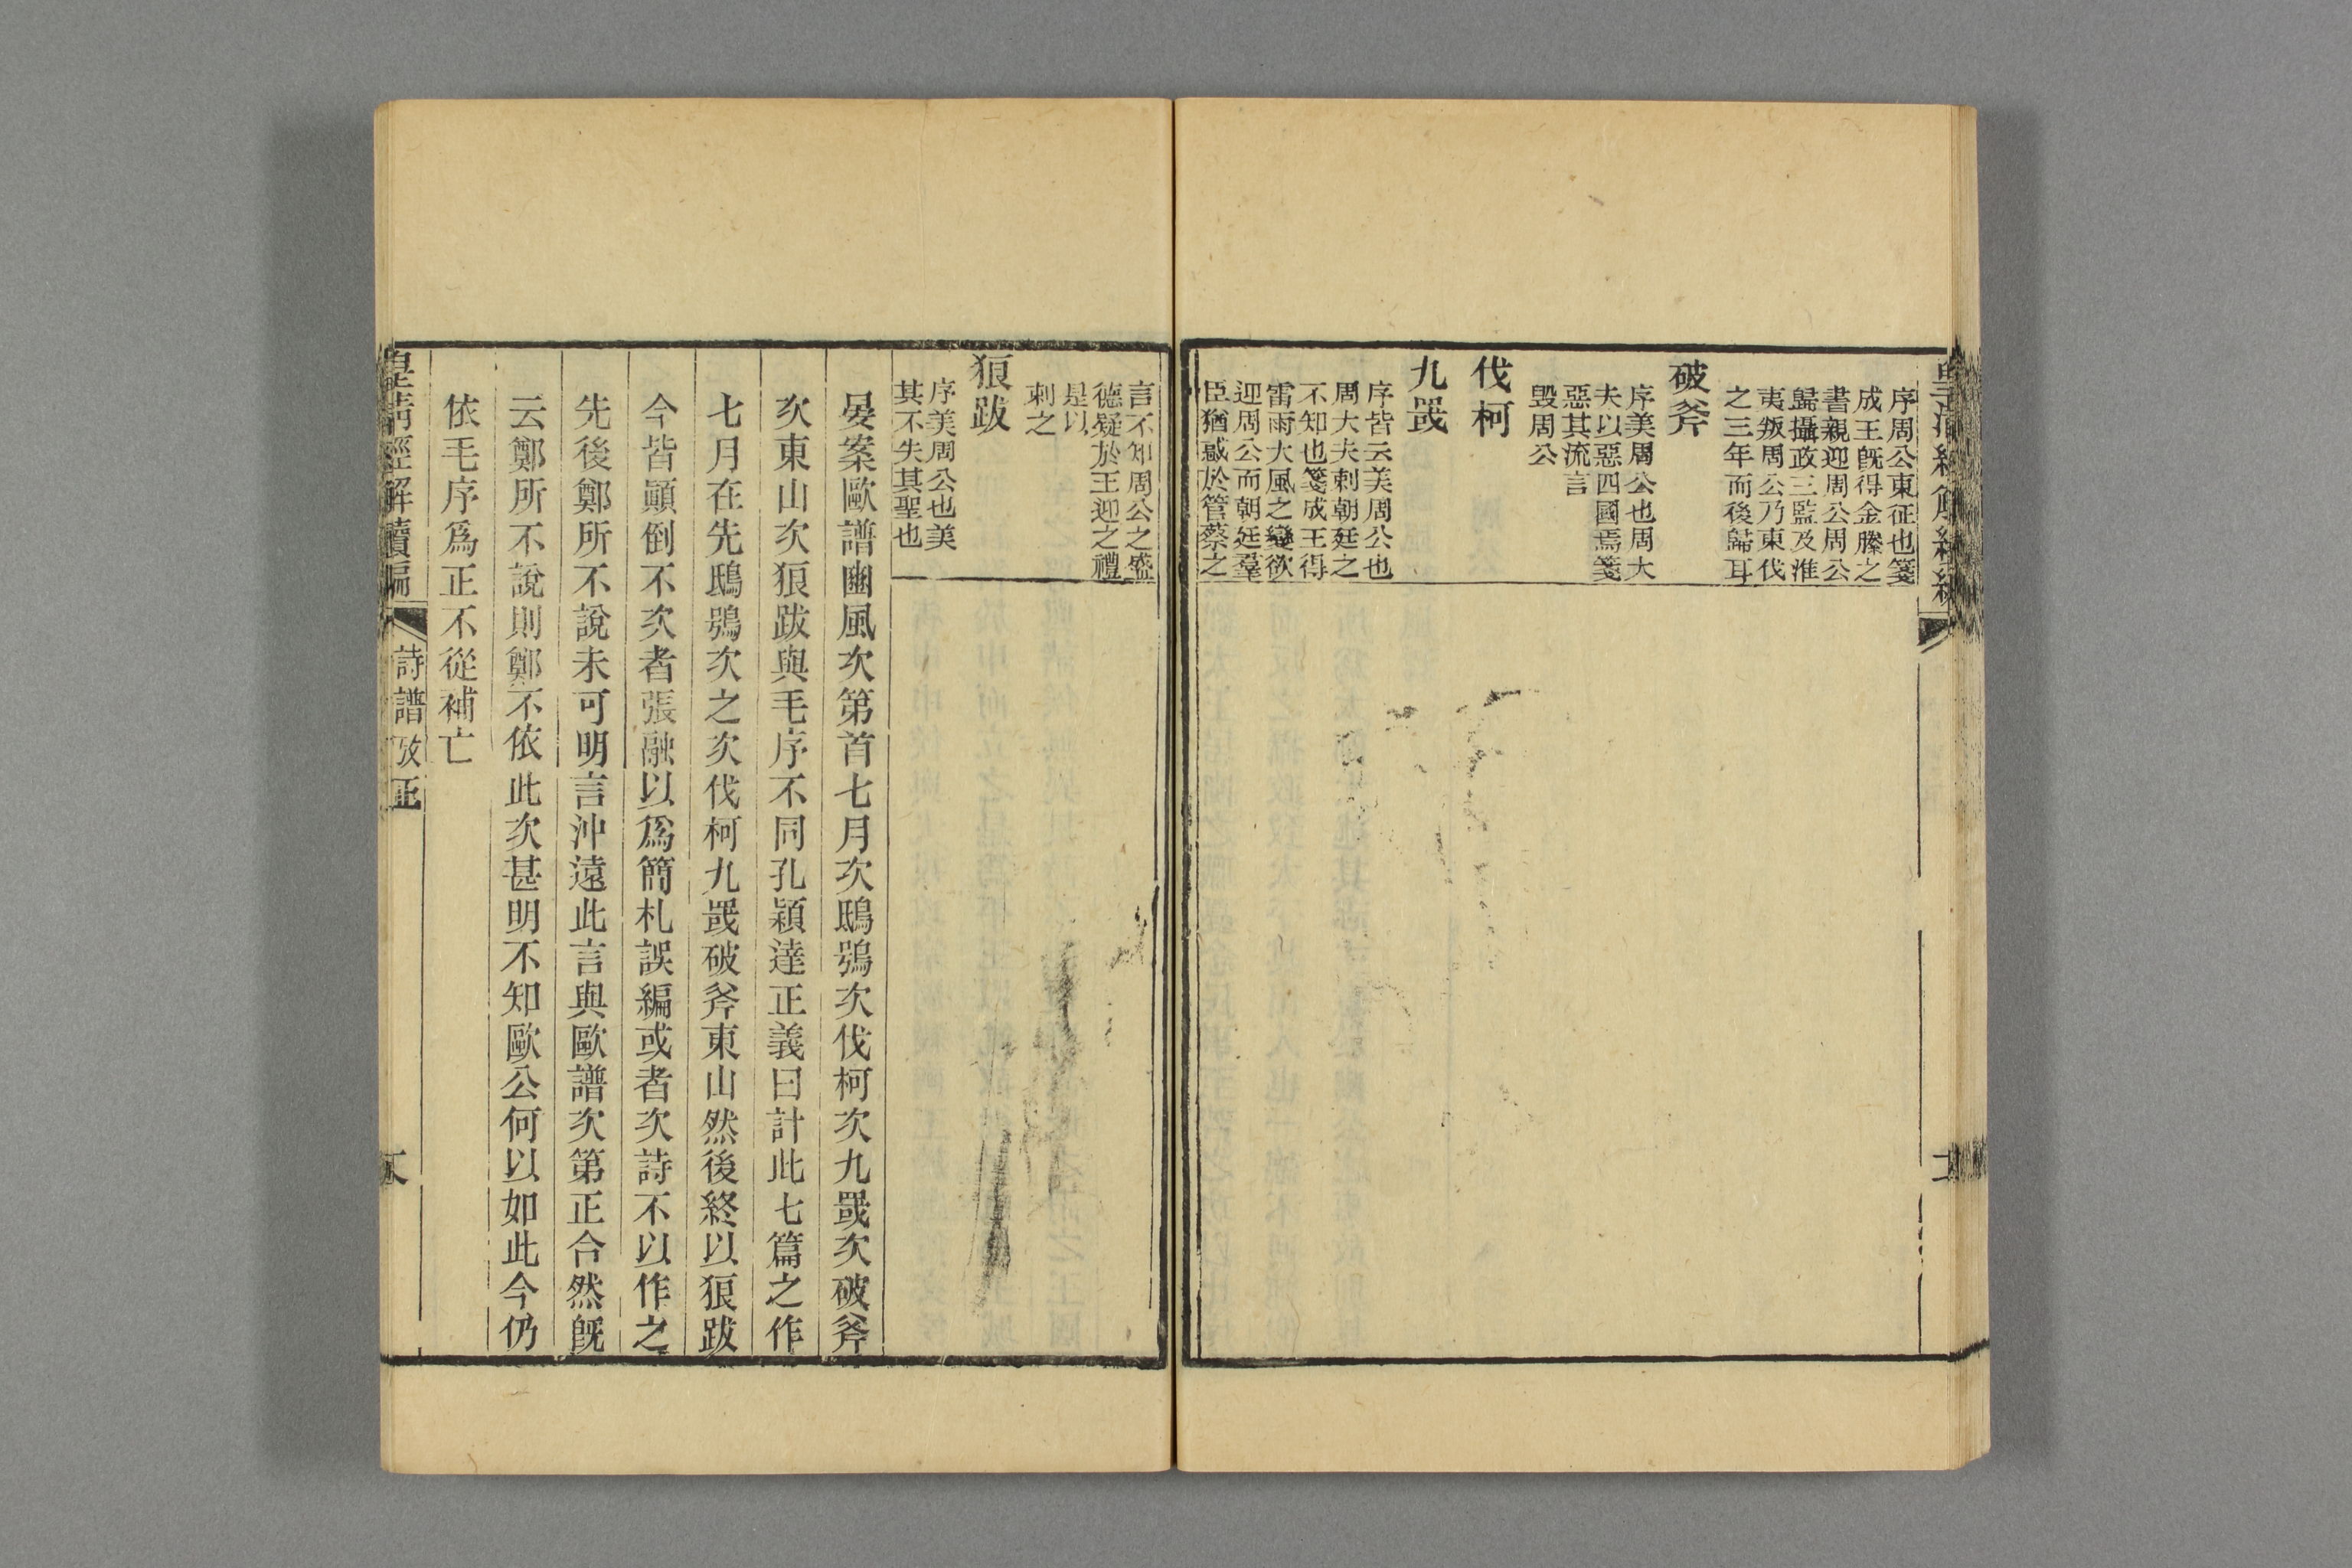 序周公東征也箋
成王既得金縢之
書親迎周公周公
歸攝政三監及淮
夷叛周公乃東伐
之三年而後歸耳
破斧
序美周公也周大
夫以惡四國焉箋
惡其流言
毀周公
伐柯
九罭
序皆云美周公也
周大夫刺朝廷之
不知也箋成王得
雷雨大風之變欲
迎周公而朝廷羣
臣猶惑於管蔡之
言不知周公之盛
德疑於王迎之禮
是以
刺之
狼跋
序美周公也美
其不失其聖也
晏案歐譜豳風次第首七月次鴟鴞次伐柯次九罭次破斧
次東山次狼跋與毛序不同孔穎達正義曰計此七篇之作
七月在先鴟鴞次之次伐柯九罭破斧東山然後終以狼跋
今皆顚倒不次者張融以爲簡札誤編或者次詩不以作之
先後鄭所不說未可明言沖遠此言與歐譜次第正合然既
云鄭所不說則鄭不依此次甚明不知歐公何以如此今仍
依毛序爲正不從補亡
皇清經解續編
詩譜攷正